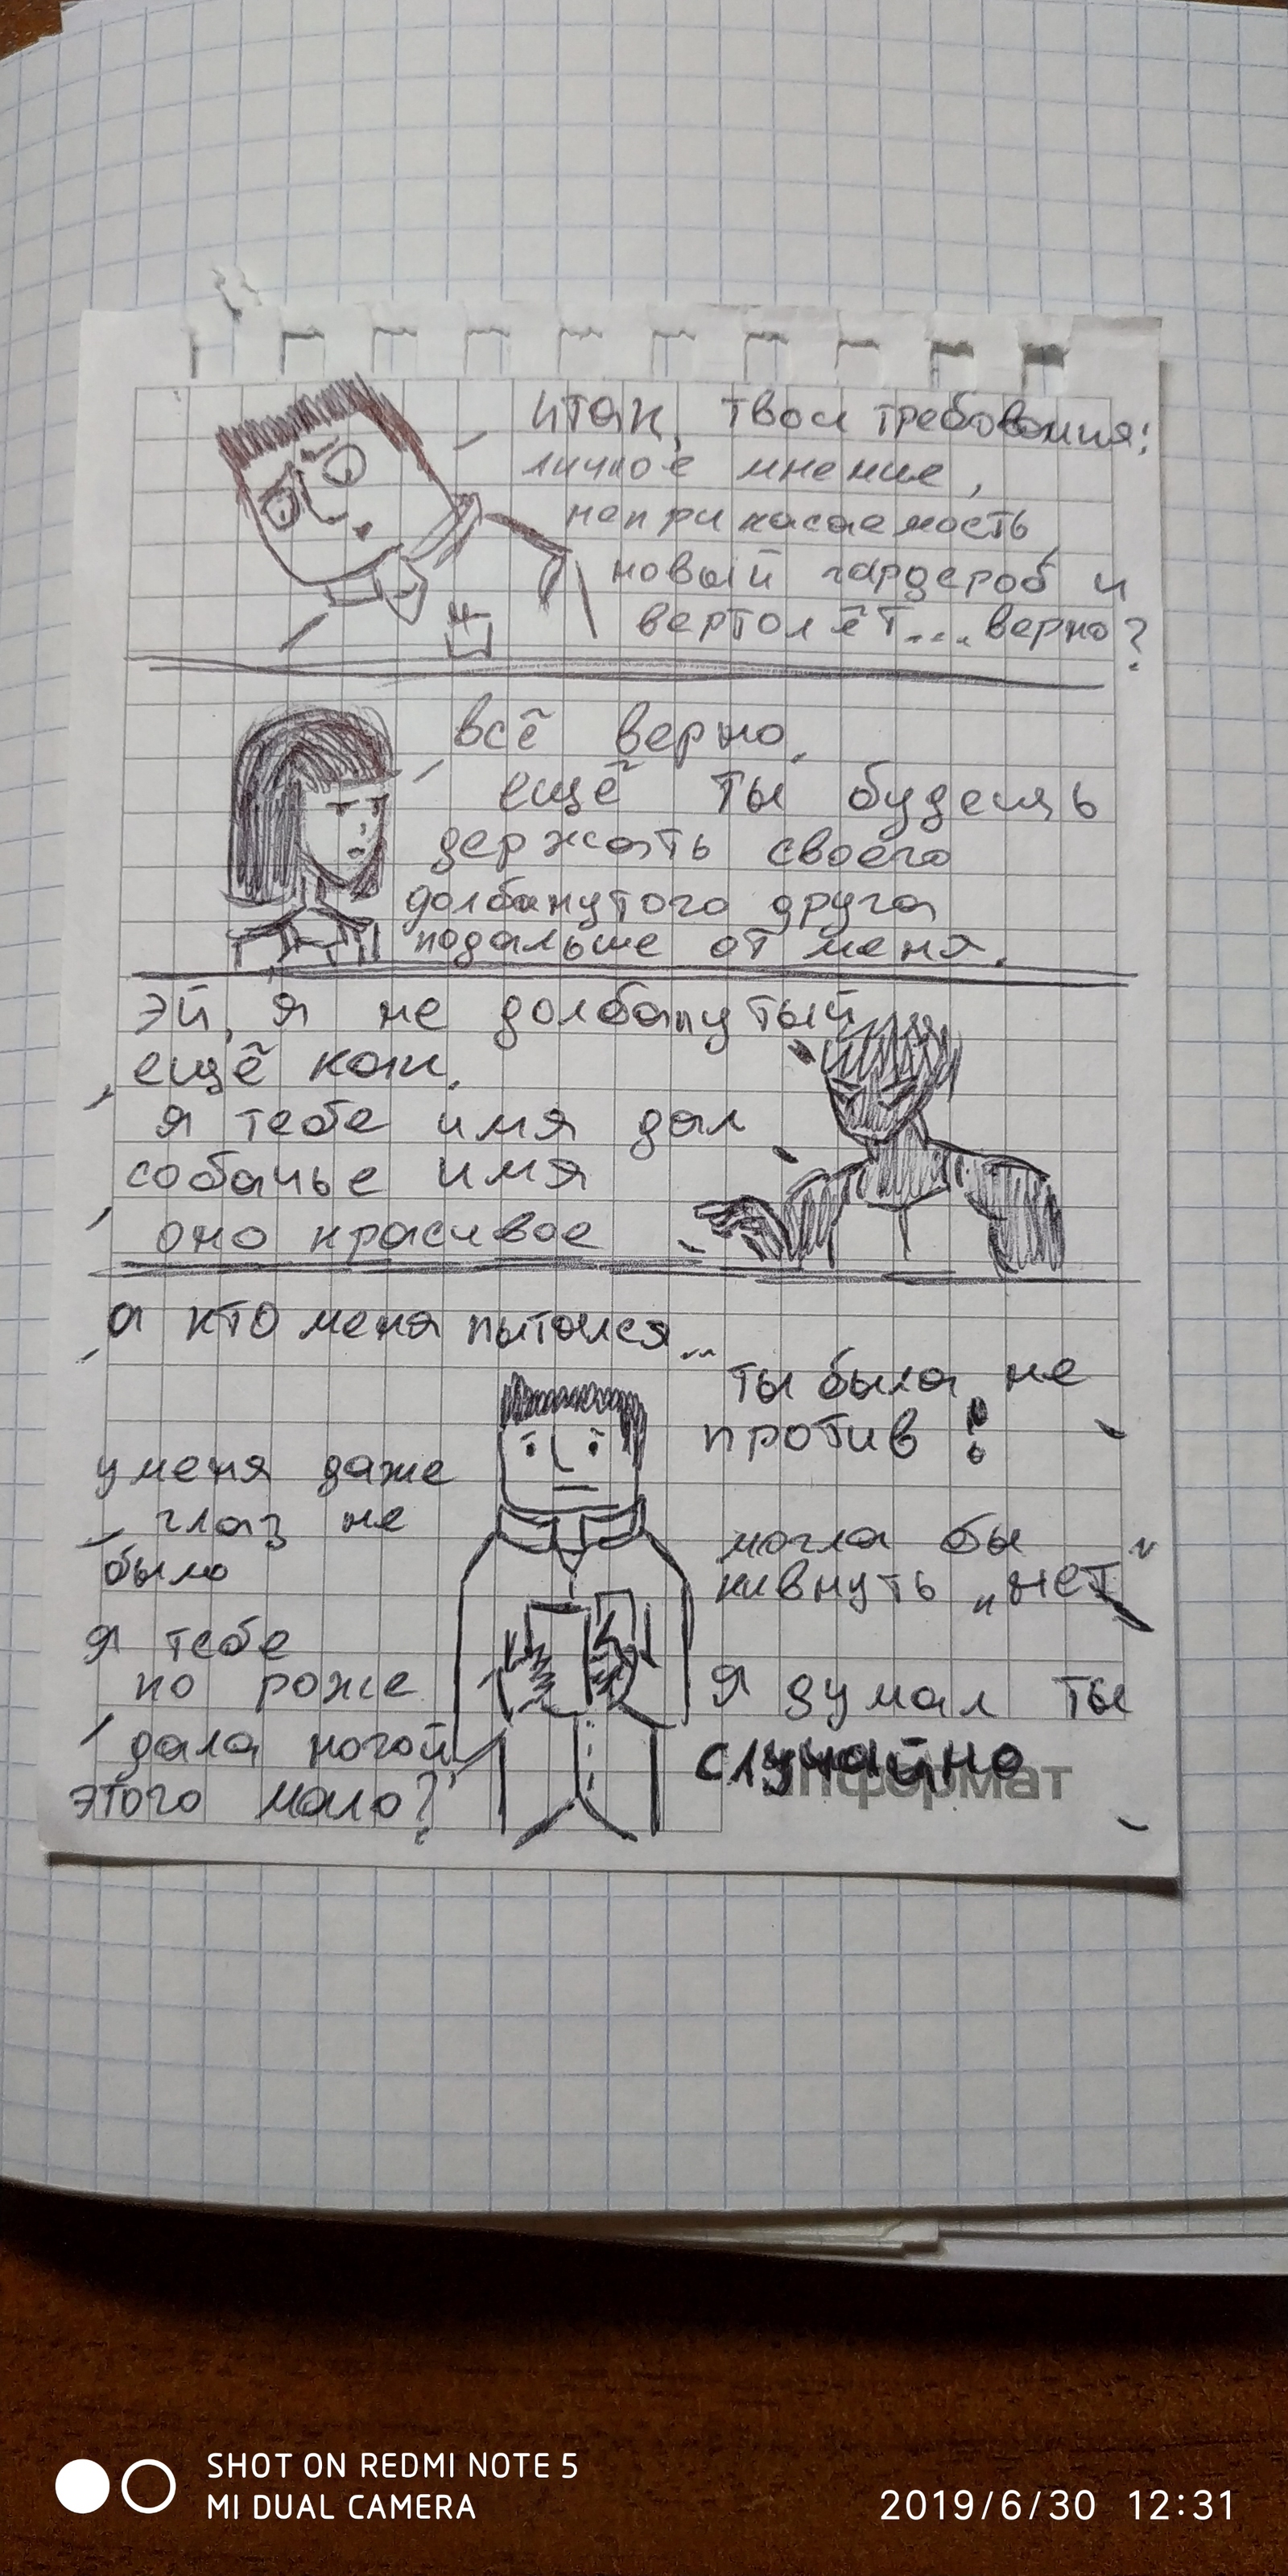 итак, твои требования:
личное мнение,
неприкасаемость
новый гардероб и
вертолёт.... верно?
всё верно,
ещё ты будешь
держать своего
долбанутого друга
подальше от меня.
эй, я не долбанутый
ещё как.
я тебе имя дал
собачье имя
оно красивое
а кто меня пытался...
ты была не
против!
у меня даже
глаз не
было
могла бы
кивнуть „нет"
я тебе
по роже
дала ногой
этого мало?
я думал ты
случайно
информат
SHOT ON REDMI NOTE 5
MI DUAL CAMERA
2019/6/30 12:31